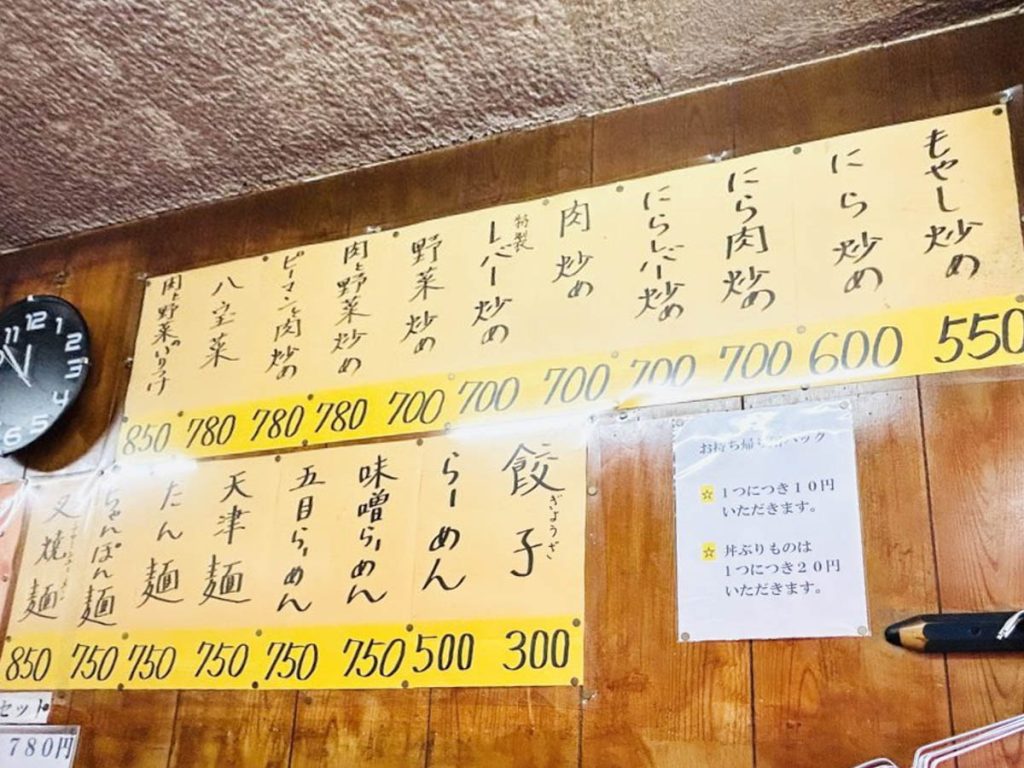 もやし炒め 550
にら炒め 600
にら肉炒め 700
にらレバー炒め 700
肉炒め 700
特製レバー炒め 700
野菜炒め 700
肉と野菜炒め 780
ピーマンと肉炒め 780
八宝菜 780
肉と野菜のいりつけ 850
餃子 ぎょうざ 300
らーめん 500
味噌らーめん 750
五目らーめん 750
天津麺 750
たん麺 750
ちゃんぽん麺 750
叉焼麺 850
お持ち帰り用パック
☆ 1つにつき10円
いただきます。
☆ 丼ぶりものは
1つにつき20円
いただきます。
セット
780円
11 12 1
2
3
4
5
6